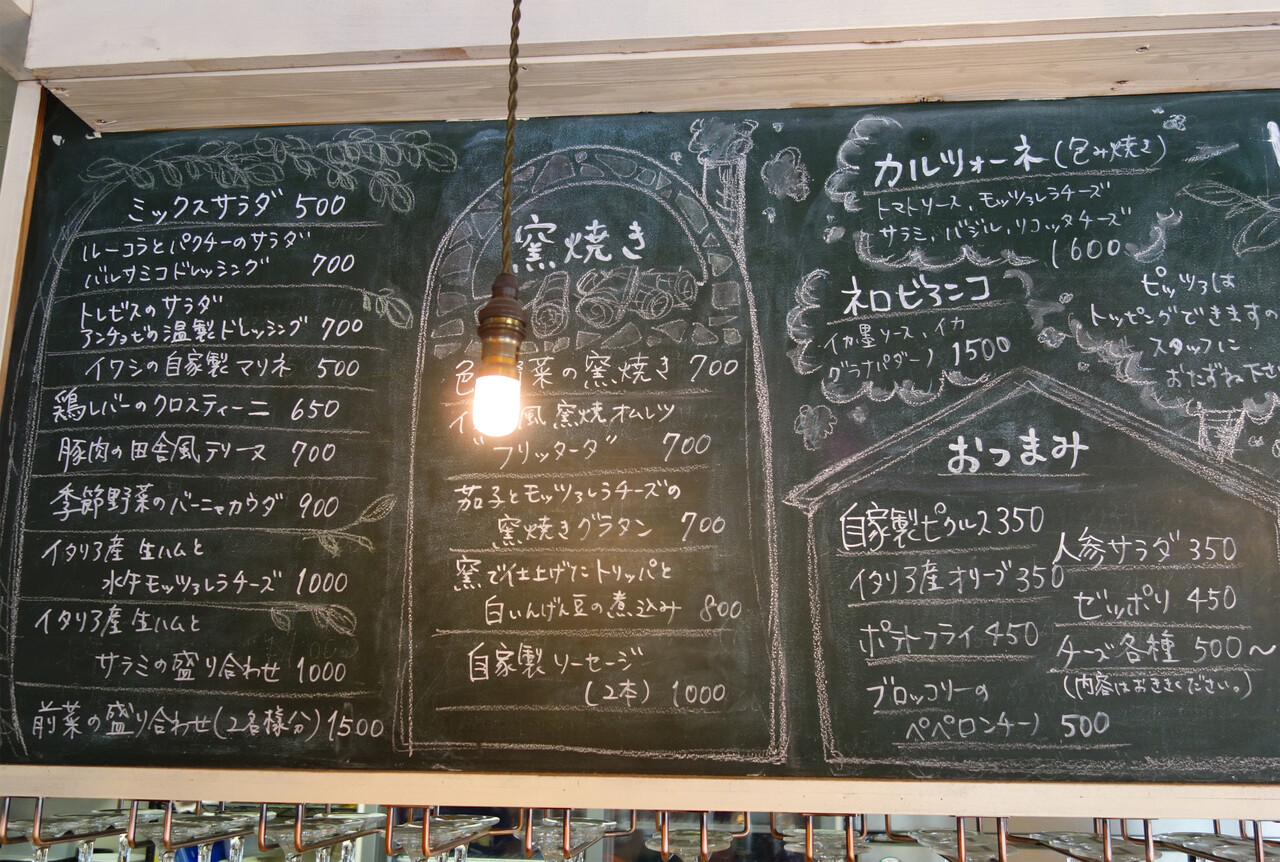 ミックスサラダ 500
ルーコラとパクチーのサラダ
バルサミコドレッシング 700
トレビスのサラダ
アンチョビの温製ドレッシング 700
イワシの自家製マリネ 500
鶏レバーのクロスティーニ 650
豚肉の田舎風テリーヌ 700
季節野菜のバーニャカウダ 900
イタリア産 生ハムと
水牛モッツァレラチーズ 1000
イタリア産 生ハムと
サラミの盛り合わせ 1000
前菜の盛り合わせ(2名様分) 1500
窯焼き
色 野菜の窯焼き 700
イ 風 窯焼オムレツ
フリッタータ゛ 700
茄子とモッツァレラチーズの
窯焼きグラタン 700
窯で仕上げたトリッパと
白いんげん豆の煮込み 800
自家製ソーセージ
(2本) 1000
カルツォーネ(包み焼き)
トマトソース、モッツァレラチーズ
サラミ、バジル、リコッタチーズ
1600
ネロビアンコ
イカ墨ソース、イカ
グラナパダーノ 1500
ピッツァは
トッピングできますの
スタッフに
おたずね下さ
おつまみ
自家製ピクルス 350
イタリア産オリーブ 350
ポテトフライ 450
ブロッコリーの
ペペロンチーノ 500
人参サラダ 350
ゼッポリ 450
チーズ各種 500〜
(内容はおききください。)